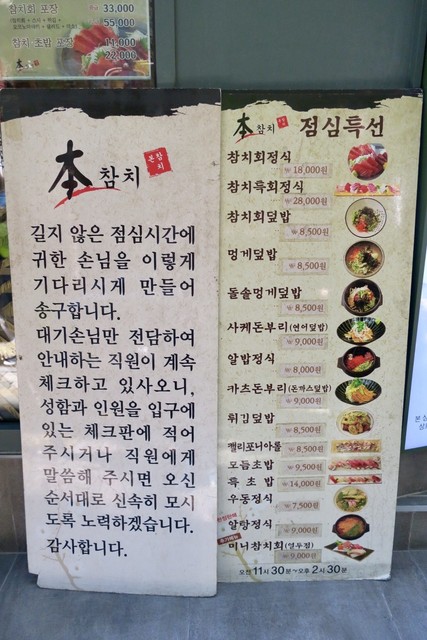 참치회 포장
33,000
55,000
참치 초밥 포장
11,000
22,000
本참치
本 참치
본참치
길지 않은 점심시간에
귀한 손님을 이렇게
기다리시게 만들어
송구합니다.
대기손님만 전담하여
안내하는 직원이 계속
체크하고 있사오니,
성함과 인원을 입구에
있는 체크판에 적어
주시거나 직원에게
말씀해 주시면 오신
순서대로 신속히 모시
도록 노력하겠습니다.
감사합니다.
本참치 점심특선
참치회정식
₩ 18,000원
참치특회정식
₩ 28,000원
참치회덮밥
₩ 8,500원
멍게덮밥
₩ 8,500원
돌솔멍게덮밥
₩ 8,500원
사케돈부리(연어덮밥)
₩ 9,000원
알밥정식
₩ 8,000원
카츠돈부리(돈까스덮밥)
₩ 9,000원
튀김덮밥
₩ 8,500원
캘리포니아롤 ₩ 8,500원
모듬초밥 ₩ 9,500원
특 초 밥 ₩ 14,000원
우동정식
₩ 7,500원
알탕정식
₩ 9,000원
미니참치회(열두점)
₩ 9,000원
오전 11시 30분~오후 2시 30분